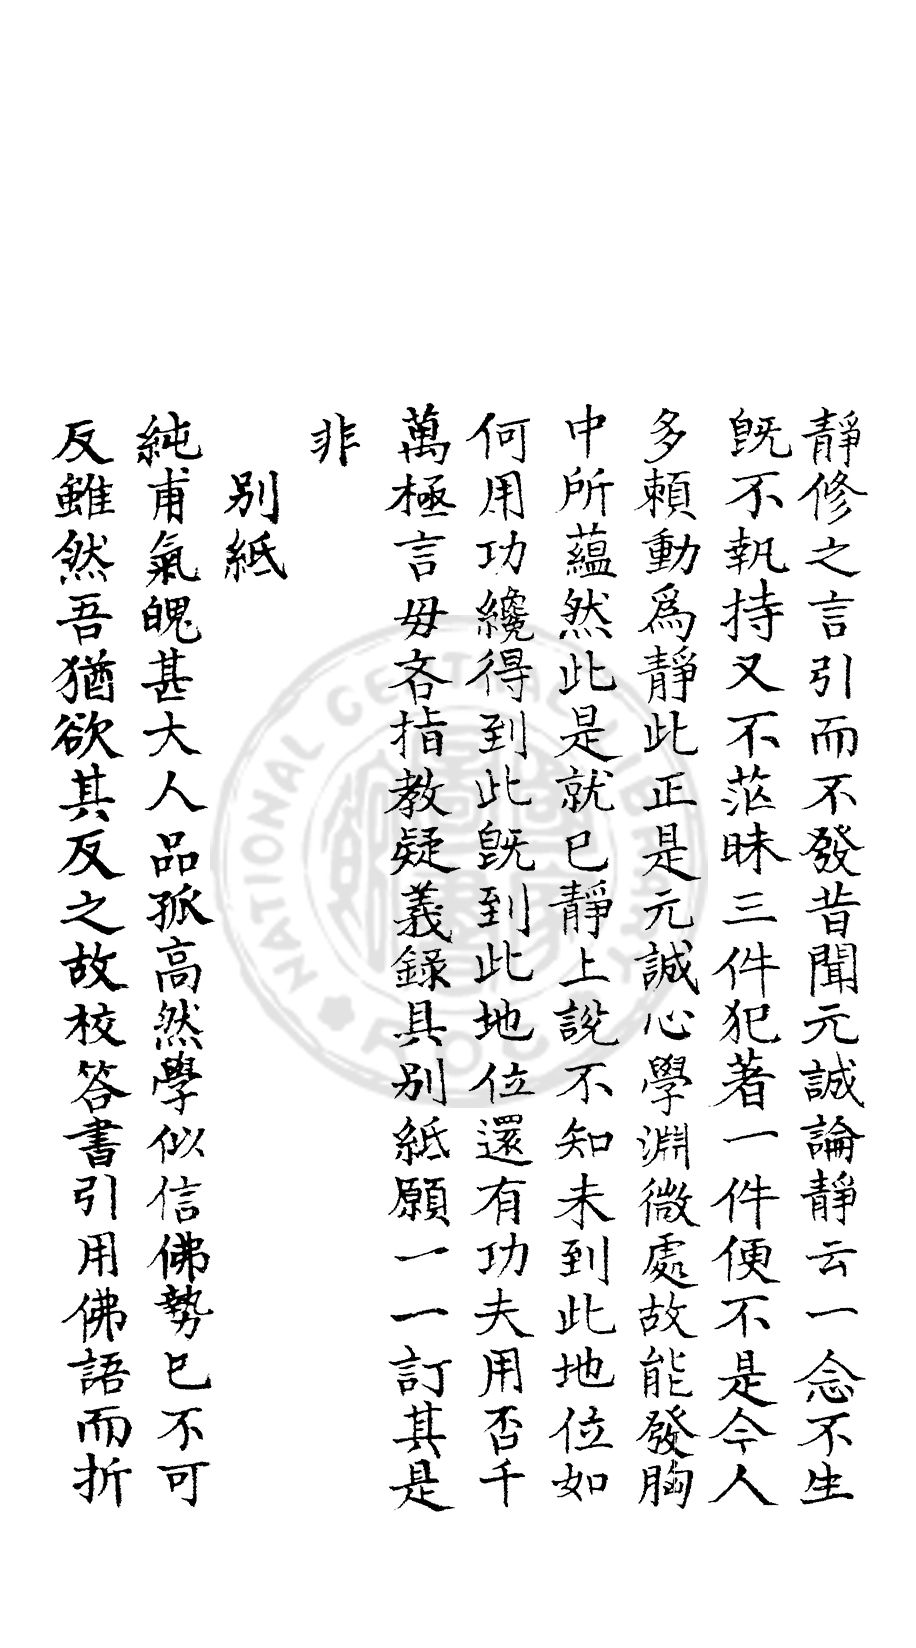 靜修之言引而不發昔聞元誠論靜云一念不生
既不執持又不茫昧三件犯著一件便不是今人
多頼動爲靜此正是元誠心學淵微處故能發胸
中所蘊然此是就已靜上說不知未到此地位如
何用功纔得到此既到此地位還有功夫用否千
萬極言毋吝指教疑義錄具別紙願一一訂其是
非
別紙
純甫氣魄甚大人品孤高然學似信佛勢已不可
反雖然吾猶欲其反之故校答書引用佛語而折
NATIONAL CENTRAL LIBRARY R.O.C.